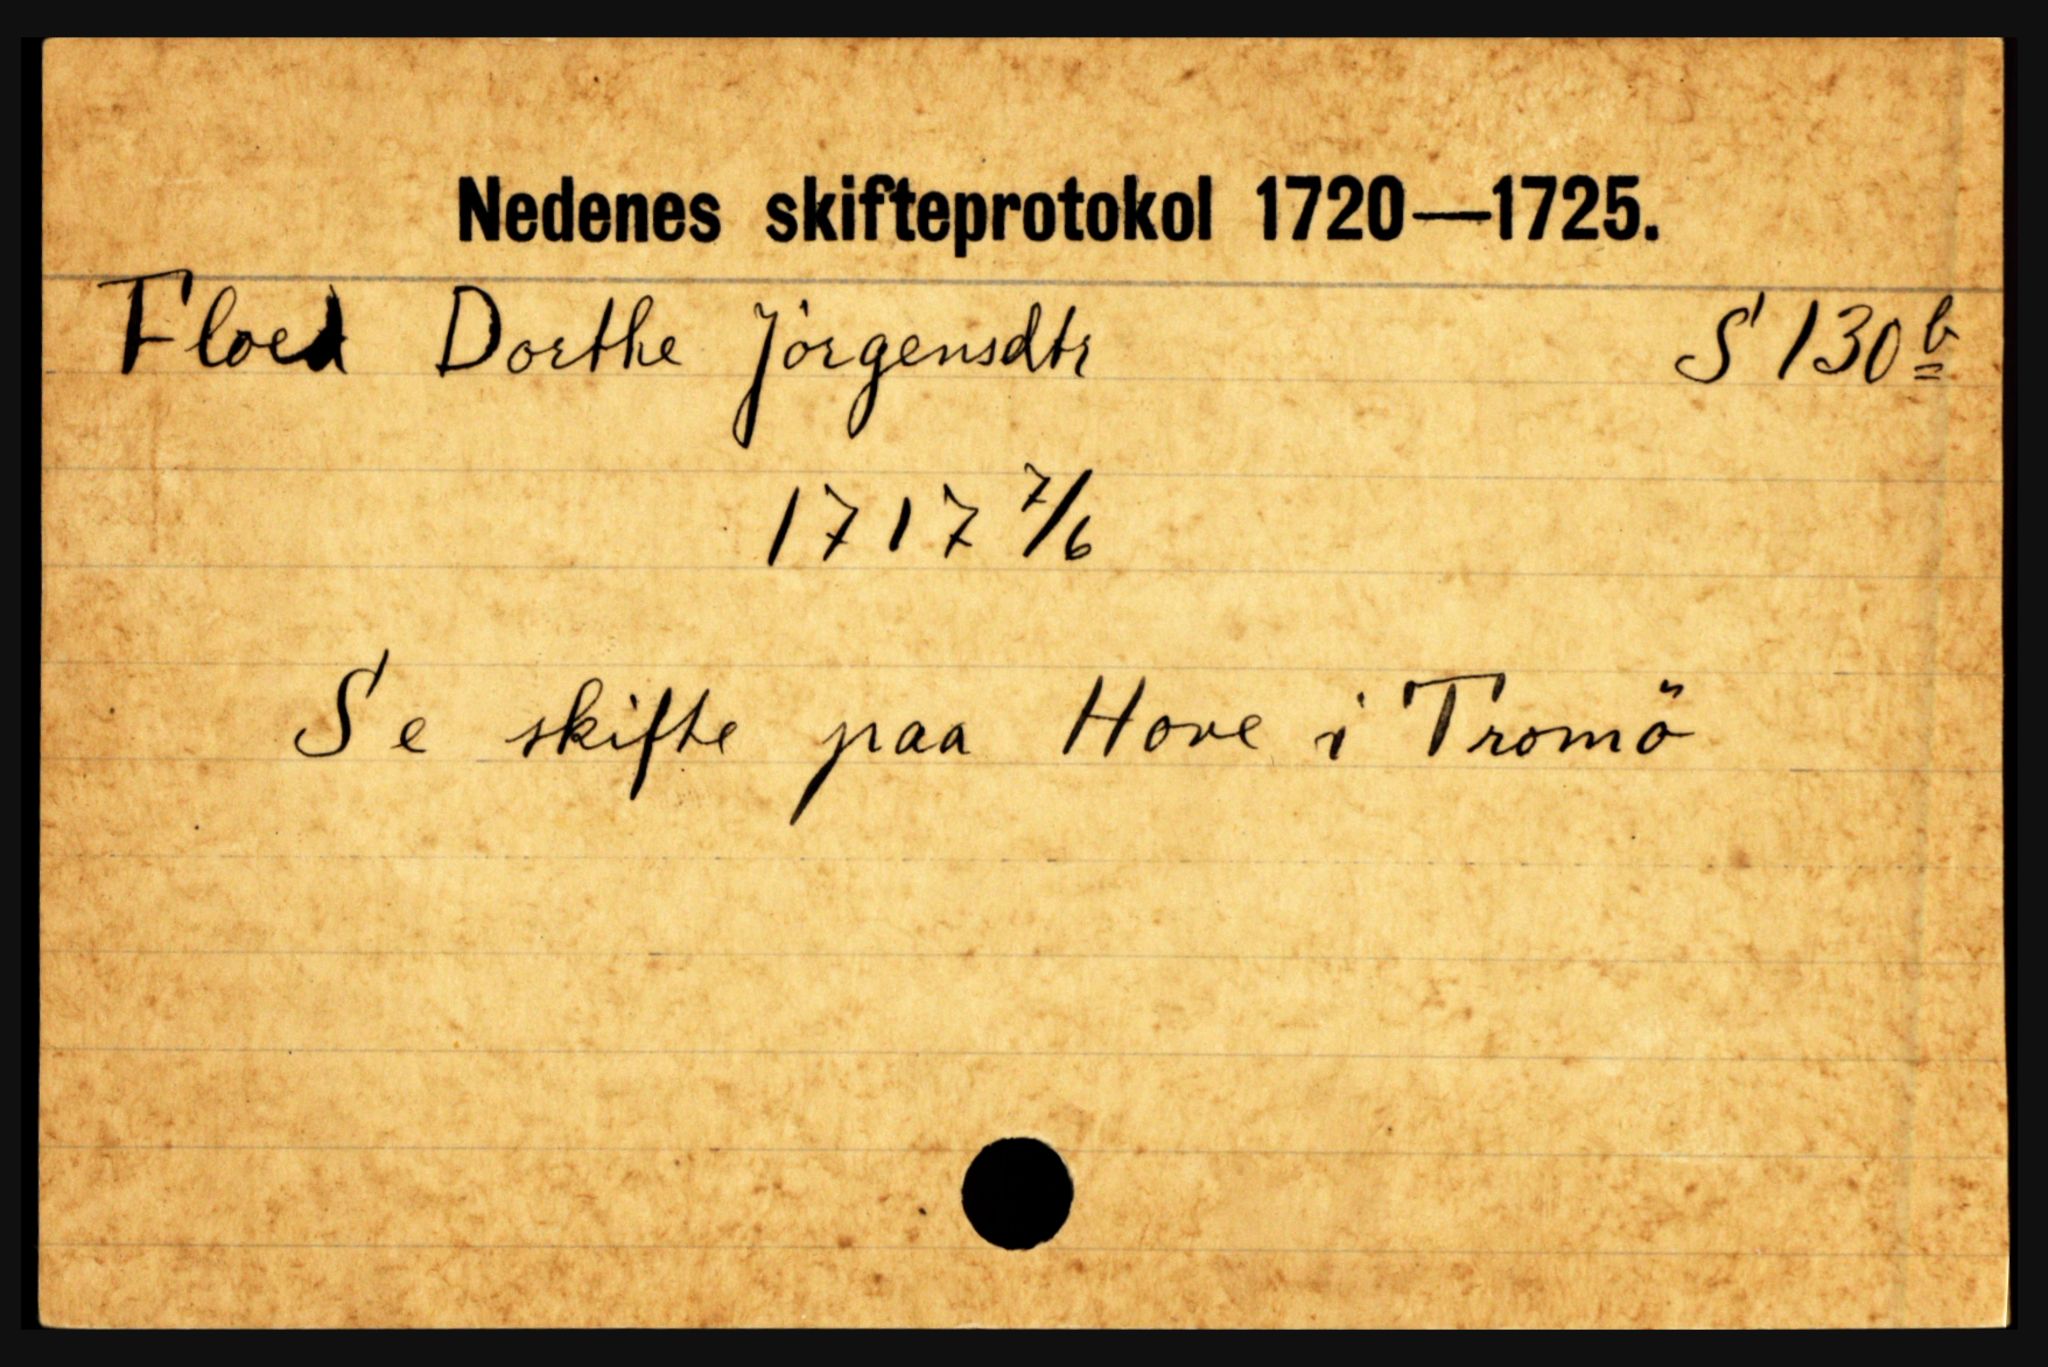 Nedenes skifteprotokol 1720—1725.
Floed Dorthe Jörgensdtr S 130 b
1717 7/6
Se skifte paa Hove i Tromö